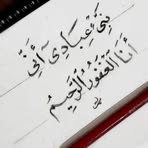 نَبِّئْ عِبَادِىٓ أَنِّىٓ
أَنَا الْغَفُورُ الرَّحِيمُ